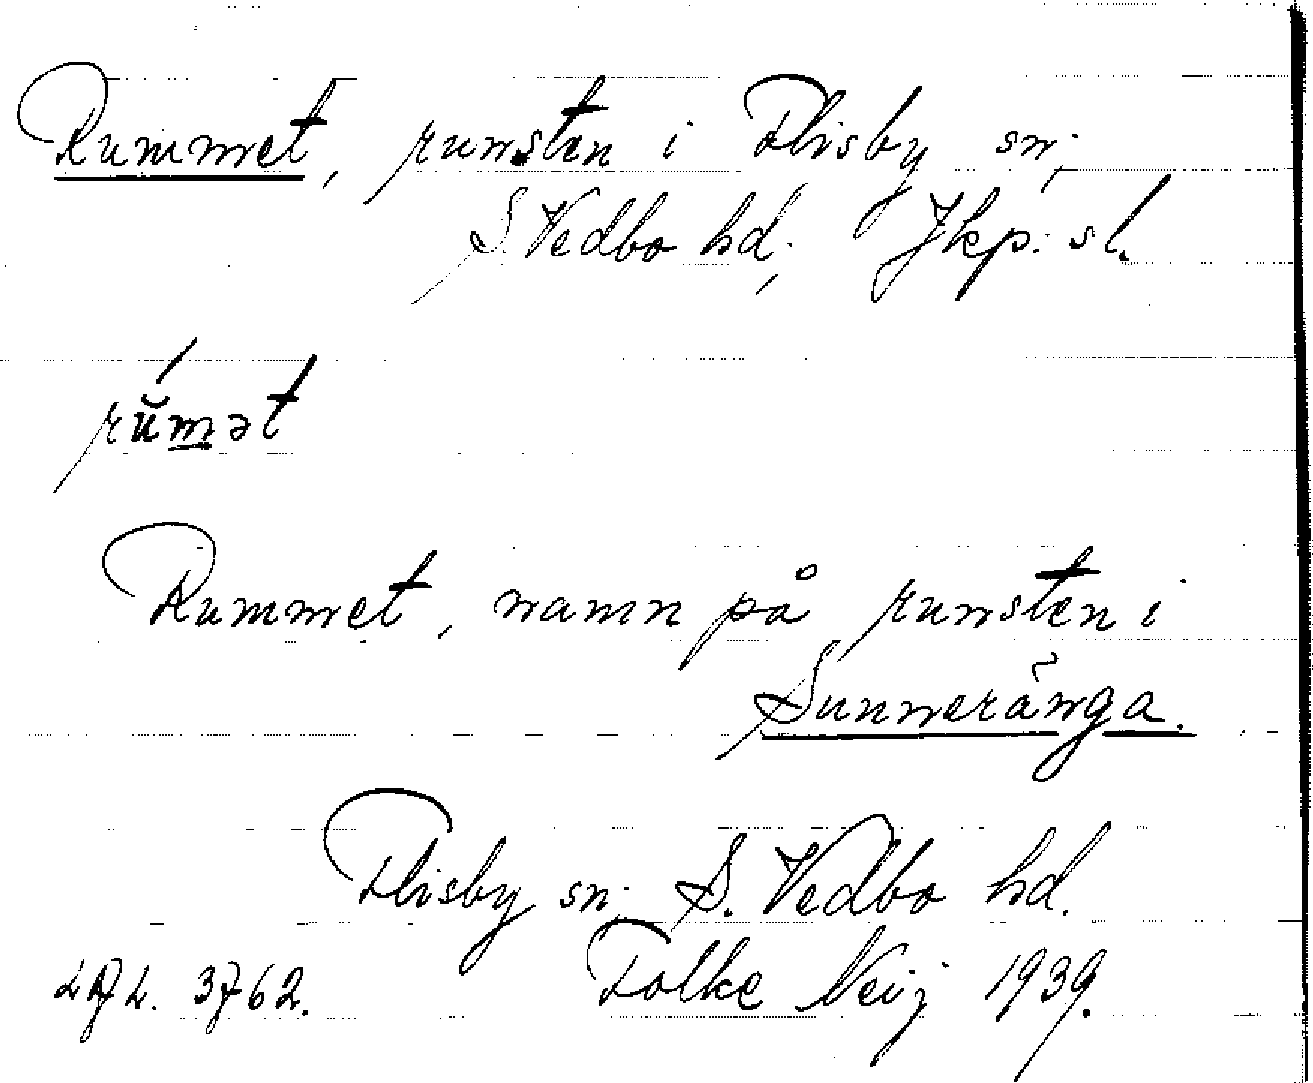 Rummet, runsten i Flisby sn,
S. Vedbo hd, Jkp. sl.
rŭ́mət
Rummet, namn på runsten i
Sunneränga.
Flisby sn, S. Vedbo hd.
Folke Neij 1939.
3762.